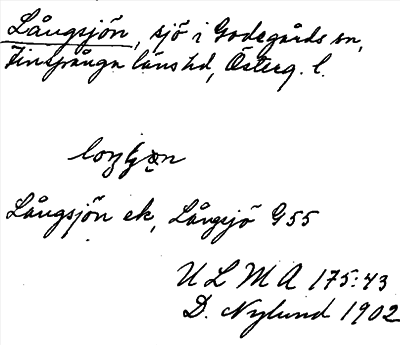 Långsjön, sjö i Godegårds sn,
Finspånga läns hd, Österg. l.
Långsjön ek, Långsjö G55
ULMA 175:43
D. Nylund 1902